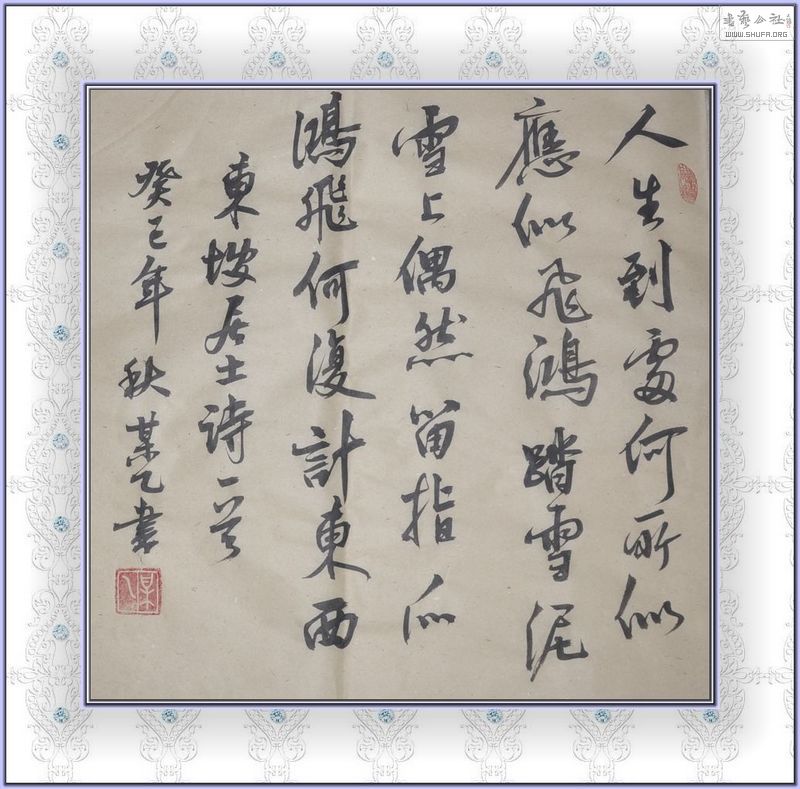 人生到處何所似
應似飛鴻踏雪泥
雪上偶然留指爪
鴻飛何復計東西
東坡居士詩一首
癸巳年秋某乙書
書藝公社
WWW.SHUFA.ORG